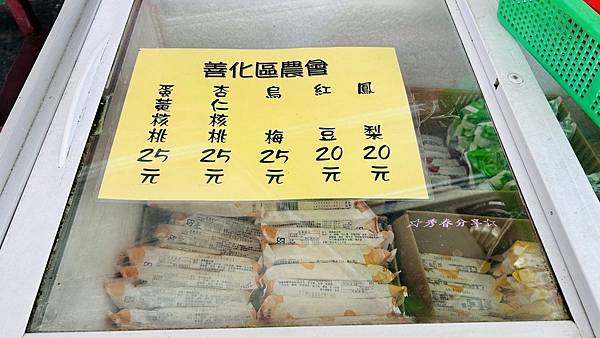 善化區農會
蛋黃核桃 25元
杏仁核桃 25元
烏梅 25元
紅豆 20元
鳳梨 20元